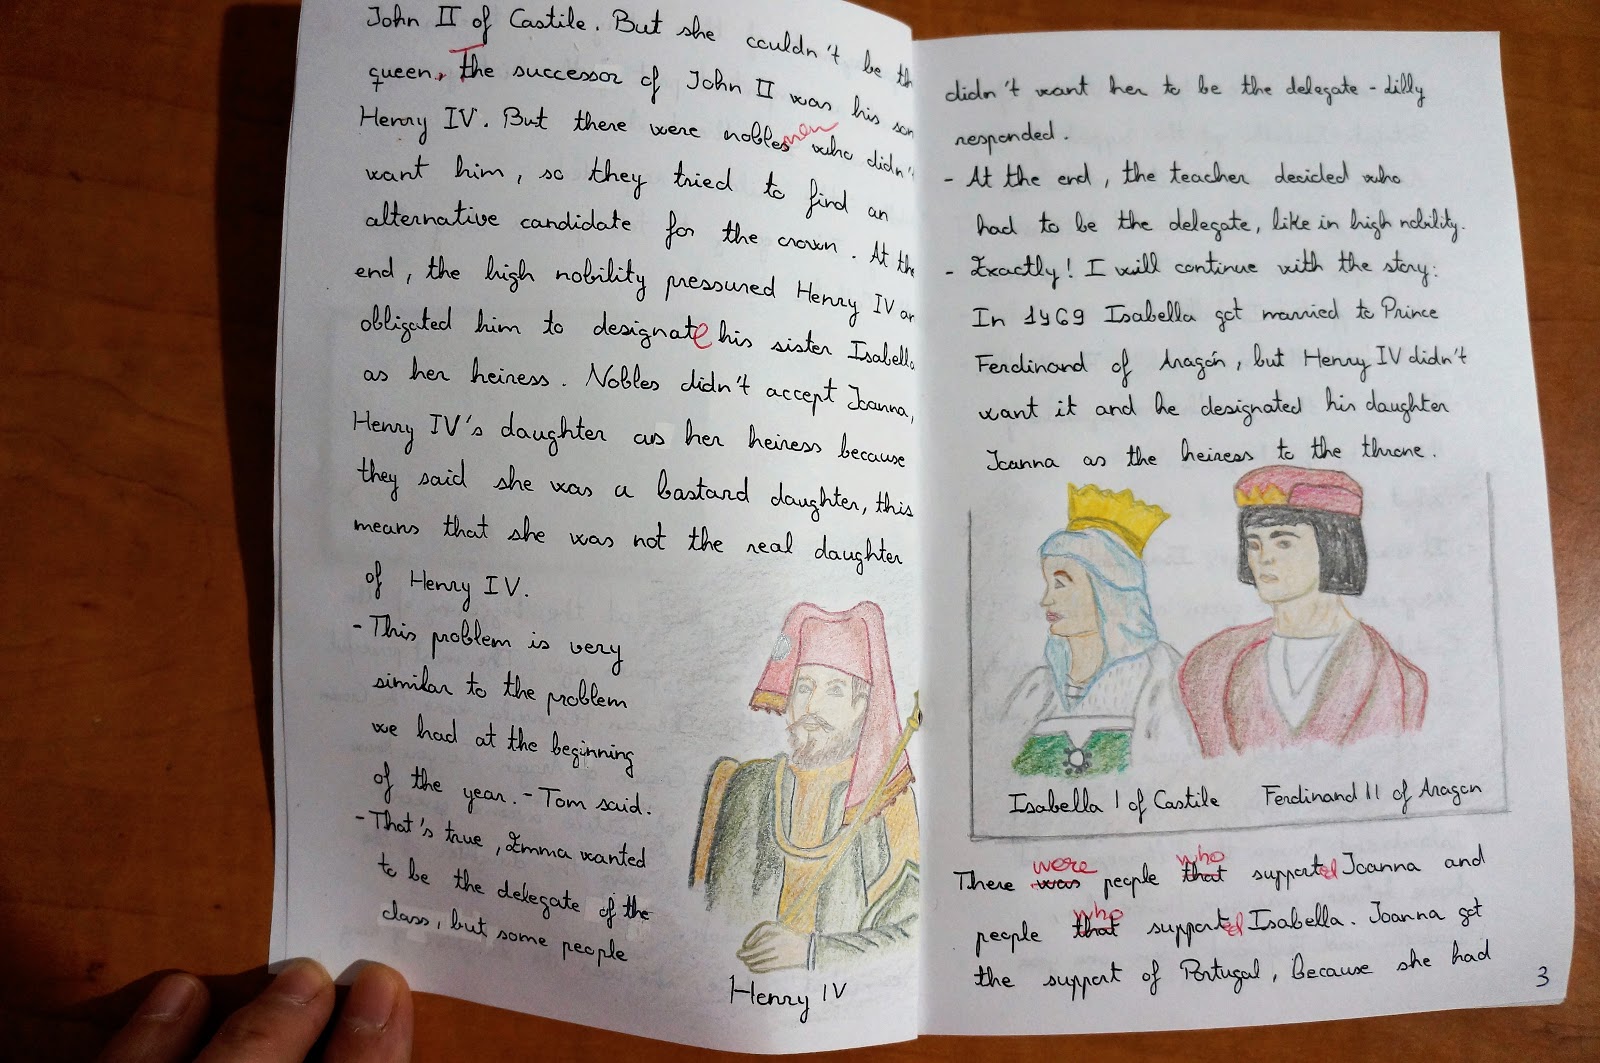 John II of Castile. But she couldn't be th
queen. The successor of John II was his son
Henry IV. But there were noblesmen who didn'
want him, so they tried to find an
alternative candidate for the crown. At the
end, the high nobility pressured Henry IV an
obligated him to designate his sister Isabella
as her heiress. Nobles didn't accept Joanna,
Henry IV's daughter as her heiress because
they said she was a bastard daughter, this
means that she was not the real daughter
of Henry IV.
- This problem is very
similar to the problem
we had at the beginning
of the year. - Tom said.
- That's true, Emma wanted
to be the delegate of the
class, but some people
Henry IV
didn't want her to be the delegate - Lilly
responded.
- At the end, the teacher decided who
had to be the delegate, like in high nobility.
- Exactly! I will continue with the story:
In 1469 Isabella got married to Prince
Ferdinand of Aragón, but Henry IV didn't
want it and he designated his daughter
Joanna as the heiress to the throne.
Isabella I of Castile Ferdinand II of Aragon
were who
There was people that supported Joanna and
who
people that supported Isabella. Joanna got
the support of Portugal, because she had
3